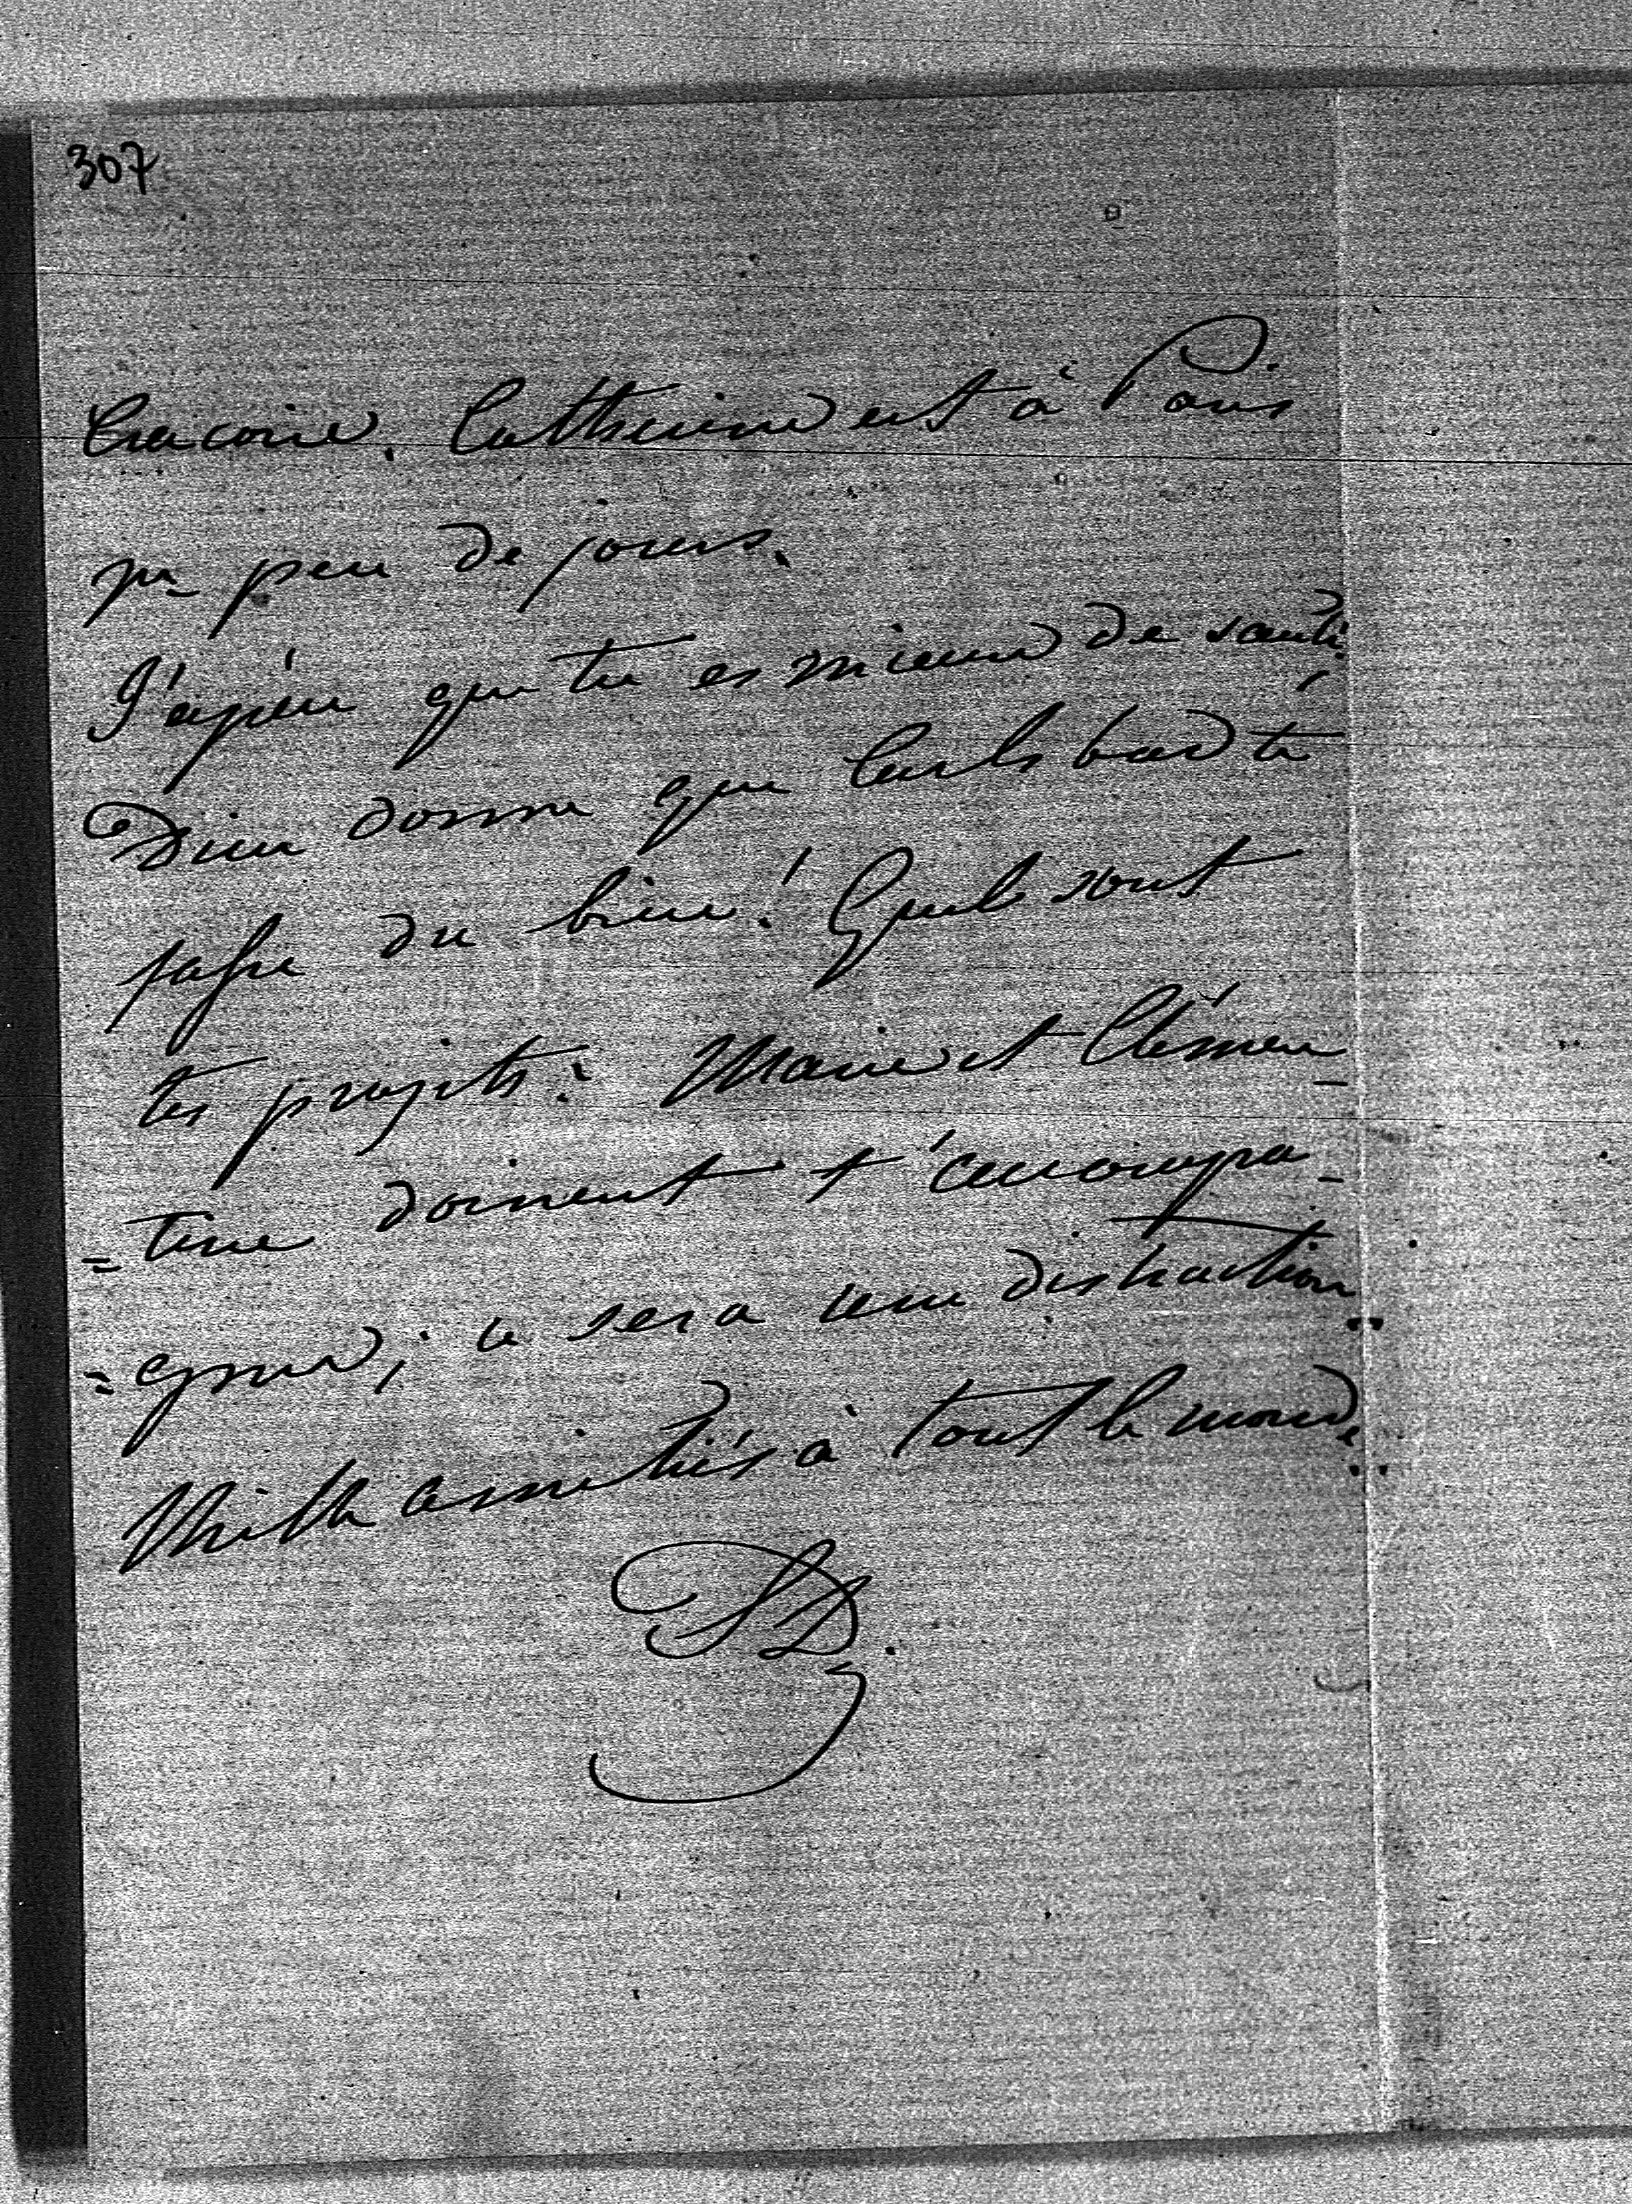 307
Cracovie. Catherine est à Paris
pr peu de jours.
J'espère que tu es mieux de santé.
Dieu donne que Carlsbad te
fasse du bien! Quels sont
tes projets? Marie et Clémen-
=tine doivent t'accompa-
=gner; ce sera une distraction..
Mille amitiés à tout le monde..